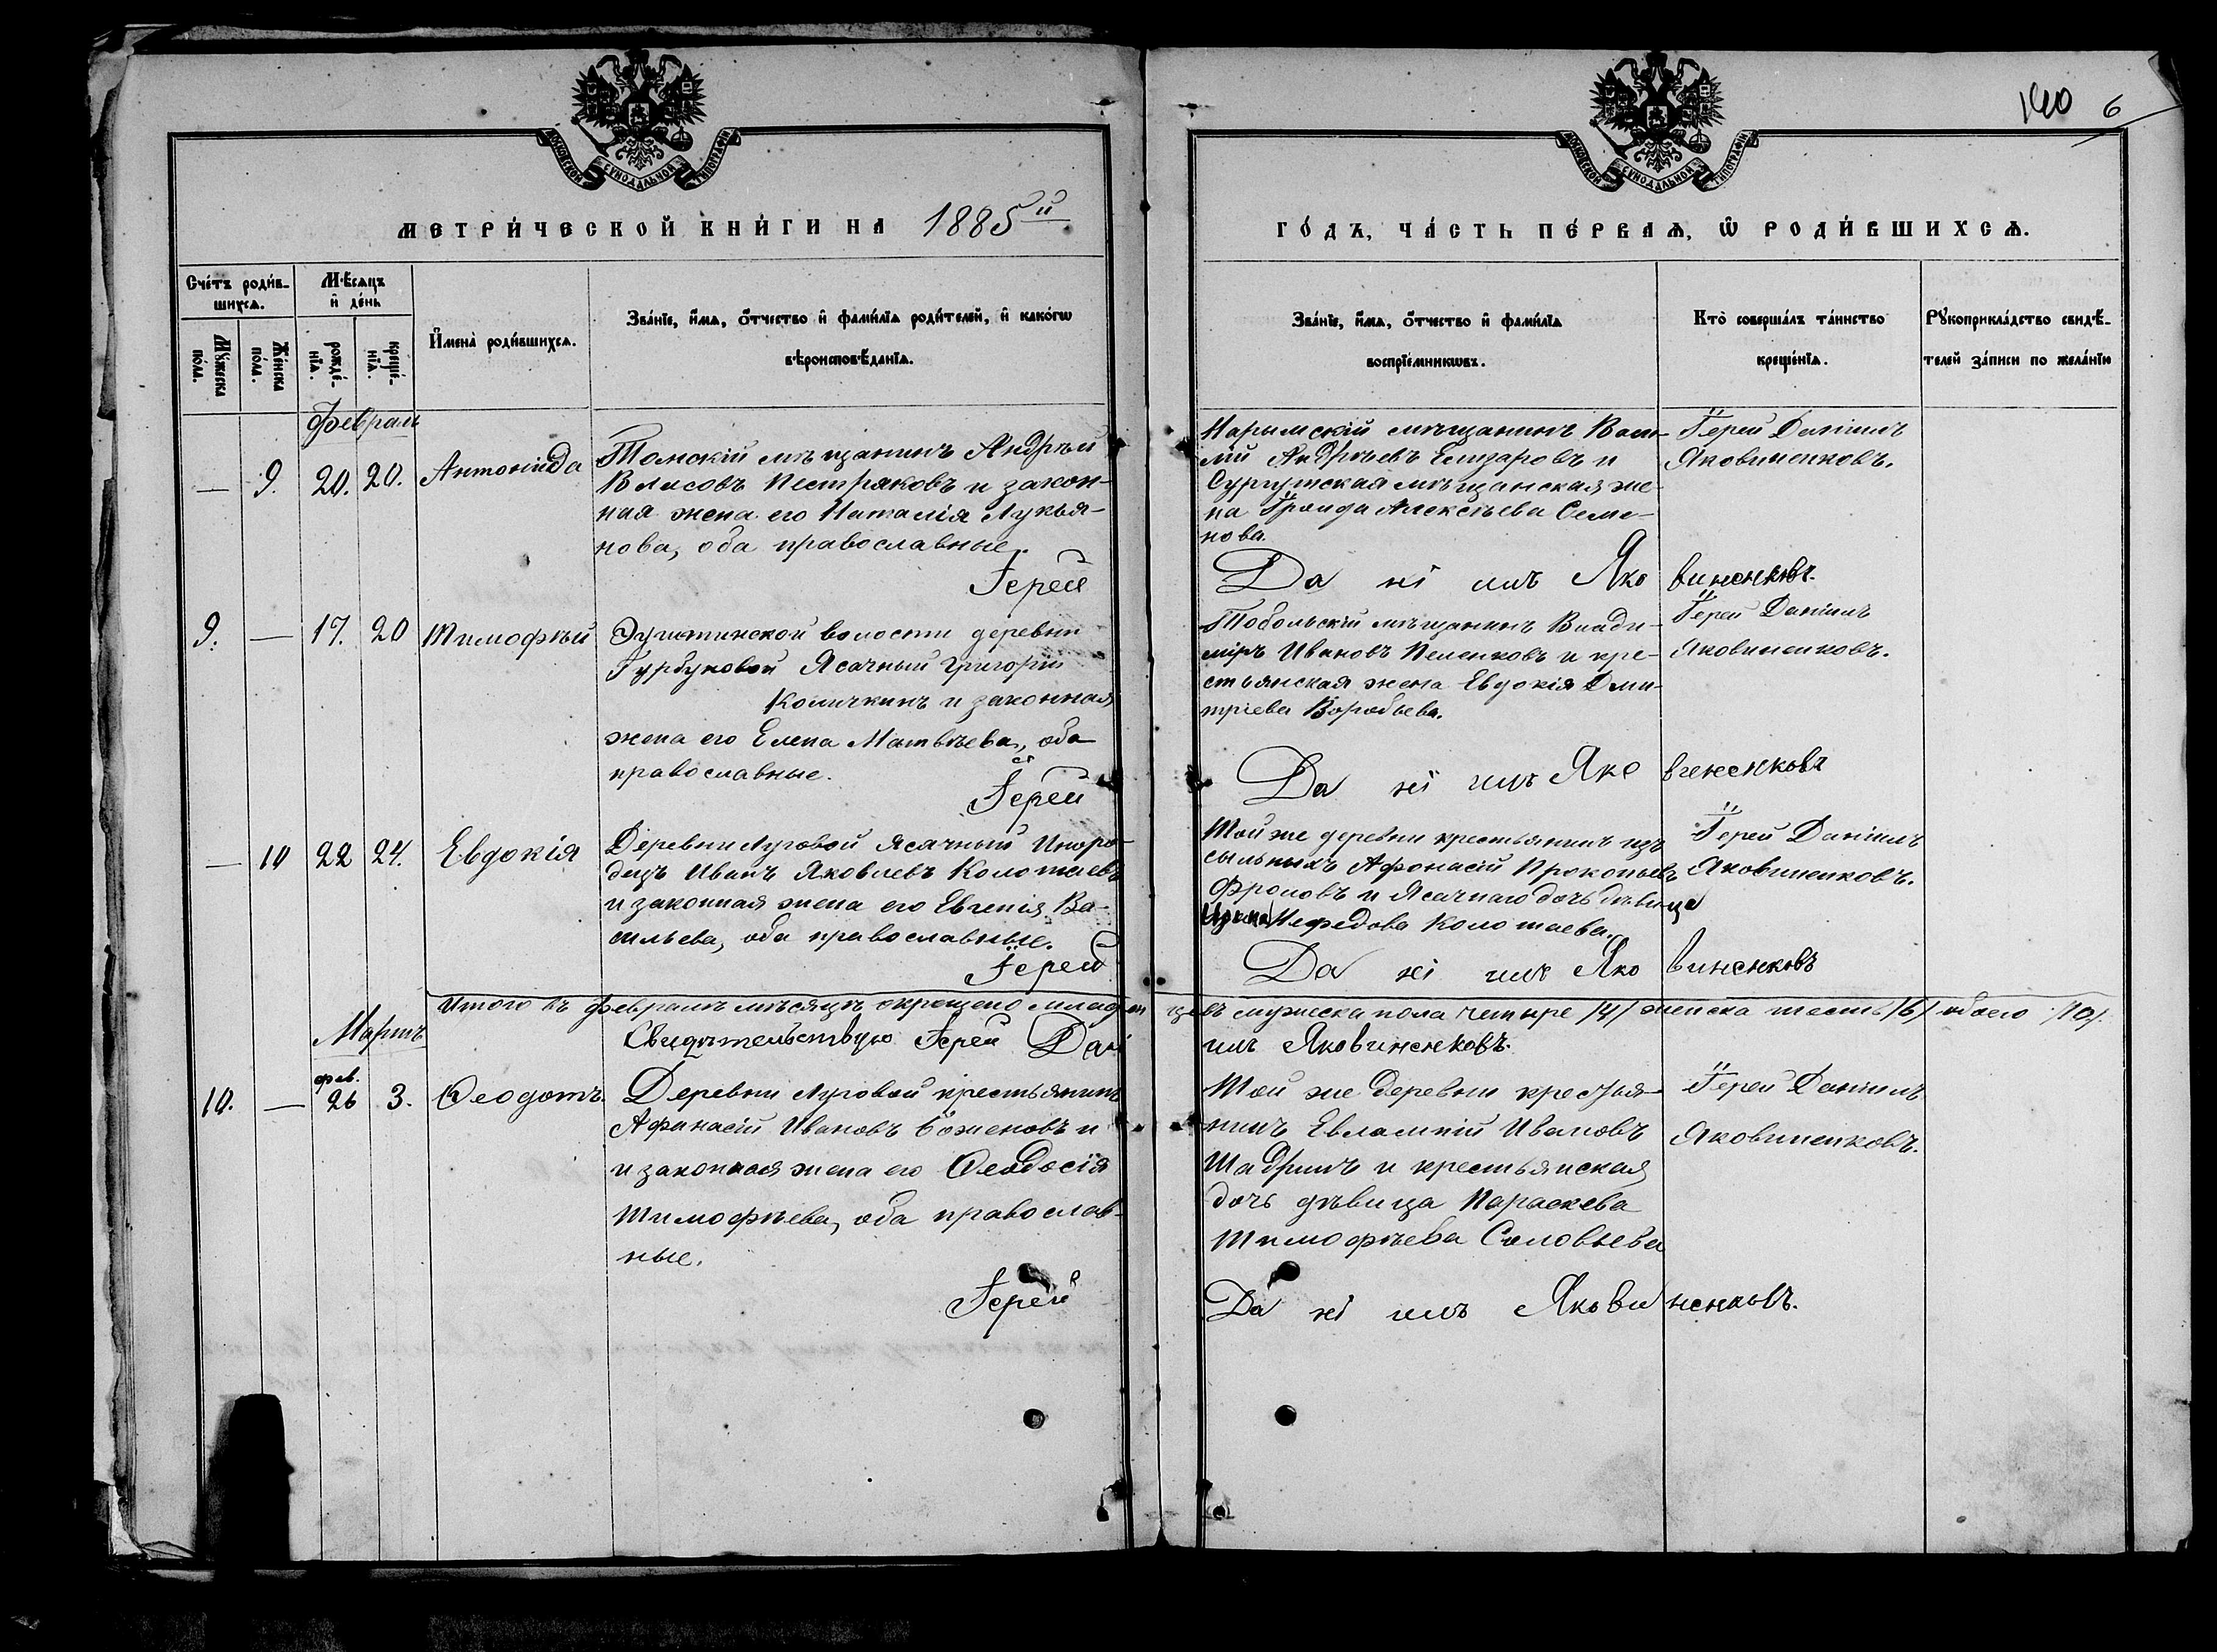 140 6
МОСКОВСКОЙ СѴНОДАЛЬНОЙ ТИПОГРАФІИ
МОСКОВСКОЙ СѴНОДАЛЬНОЙ ТИПОГРАФІИ
МЕТРИ́ЧЕСКОЙ КНИ́ГИ НА 1885й
ГО́ДЪ, ЧА́СТЬ ПЕ́РВАѦ, Ѽ РОДИ́ВШИХСѦ.
Сче́тъ роди́в-
шихсѧ.
Мꙋжеска
по́ла.
Же́нска
по́ла.
Мѣ́сѧцъ
и҆ де́нь
рожде́-
нїѧ.
креще́-
нїѧ.
И҆мена̀ роди́вшихсѧ.
Зва́нїе, и҆́мѧ, ѻ҆́тчество и҆ фами́лїѧ роди́телей, и҆ како́гѡ
вѣроисповѣ́данїѧ.
Зва́нїе, и҆́мѧ, ѻ҆́тчество и҆ фами́лїѧ
воспрїе́мникѡвъ.
Кто̀ соверша́лъ та́инство
креще́нїѧ.
Рꙋкоприкла́дство свидѣ́-
телей за́писи по жела́нїю
Февраль
— 9. 20. 20. Антонінда
Томскій мѣщанинъ Андрѣй
Власовъ Пестряковъ и закон-
ная жена его Наталія Лукья-
нова, оба православные.
Нарымскій мѣщанинъ Васи-
лій Андрѣевъ Елизаровъ и
Сургутская мѣщанская же-
на Ираида Алексѣева Семе-
нова.
Іерей Даніилъ
Яковиненковъ.
Іерей Даніилъ Яковиненковъ.
9. — 17. 20 Тимофѣй
Эуштинской волости деревни
Турбуковой Ясачный Григорій
Комичкинъ и законная
жена его Елена Матвѣева, оба
православные.
Тобольскій мѣщанинъ Влади-
міръ Ивановъ Пеленковъ и кре-
стьянская жена Евдокія Дми-
тріева Воробьева.
Іерей Даніилъ
Яковиненковъ.
Іерей Даніилъ Яковиненковъ
— 10 22 24. Евдокія
Деревни Луговой Ясачный Иноро-
децъ Иванъ Яковлевъ Коломаевъ
и законная жена его Евгенія Ва-
сильева, оба православные.
Той же деревни крестьянинъ изъ
сыльныхъ Афонасій Прокопьевъ
Фроловъ и Ясачнаго дочь дѣвица
Нефедова Коломаева.
Іерей Даніилъ
Яковиненковъ.
Іерей Даніилъ Яковиненковъ
Итого въ февралѣ мѣсяцѣ окрещено младенцевъ мужеска пола четыре /4/ женска шесть /6/ обоего /10/.
Свидѣтельствую Іерей Даніилъ Яковиненковъ.
Мартъ
фев.
10. — 26 3. Ѳеодотъ.
Деревни Луговой крестьянинъ
Афанасій Ивановъ Боженовъ и
и законная жена его Ѳеодосія
Тимофѣева, оба православ-
ные.
Той же деревни крестья-
нинъ Евлампій Ивановъ
Шадринъ и крестьянская
дочь дѣвица Параскева
Тимофѣева Соловьева
Іерей Даніилъ
Яковиненковъ.
Іерей Даніилъ Яковиненковъ.